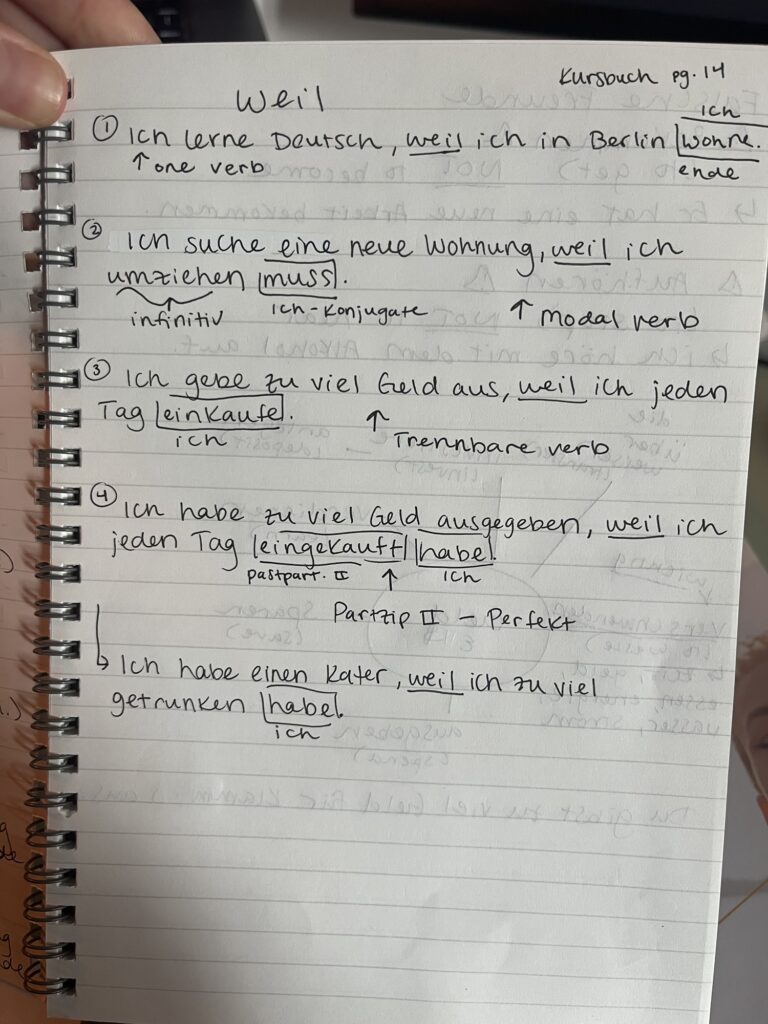 Kursbuch pg. 14
Weil
ich
① Ich lerne Deutsch, weil ich in Berlin wohne.
↑ one verb
ende
② Ich suche eine neue Wohnung, weil ich
umziehen muss.
infinitiv
ich-konjugate
↑ modal verb
③ Ich gebe zu viel Geld aus, weil ich jeden
Tag einkaufe.
ich
↑ Trennbare verb
④ Ich habe zu viel Geld ausgegeben, weil ich
jeden Tag eingekauft habe.
pastpart. II
↑
ich
Partzip II - Perfekt
↳ Ich habe einen Kater, weil ich zu viel
getrunken habe.
ich